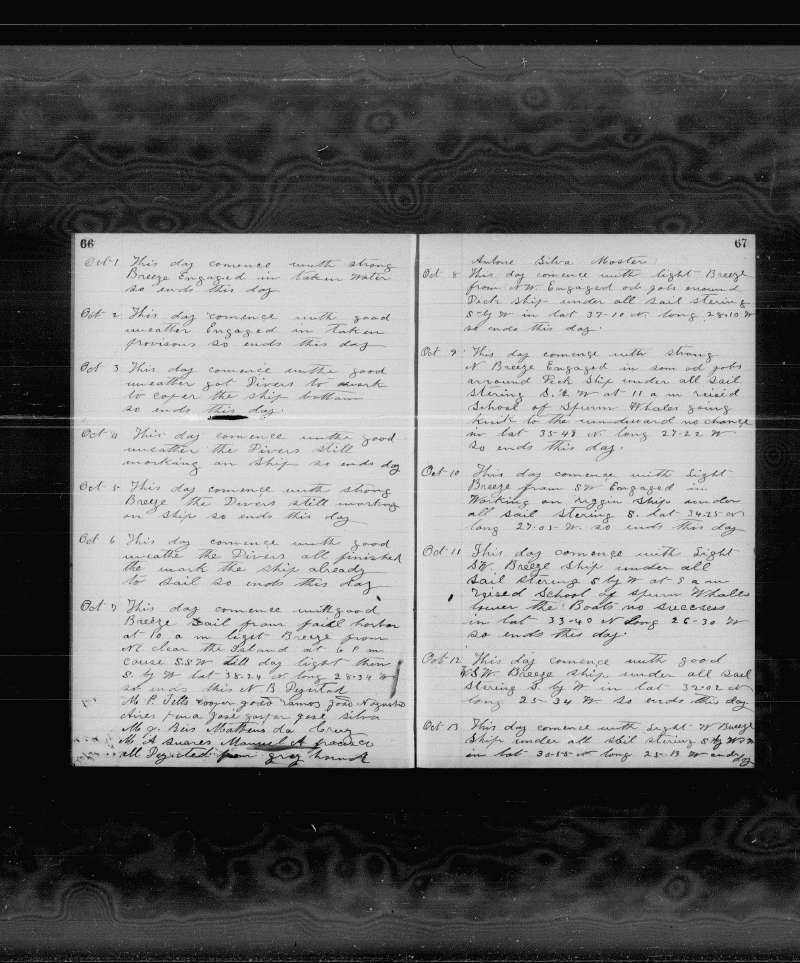 66
Oct 1 This day comence with strong
Breeze Engaged in taken Water
so ends this day
Oct 2 This day comence with good
weather Engaged in taken
provisons so ends this day
Oct 3 This day comence withe good
weather got Divers to work
to coper the ship bottam
so ends this day.
Oct 4 This day comence withe good
weather the Divers still
working on ship so ends day
Oct 5 This day comence with strong
Breeze the Divers still working
on ship so ends this day
Oct 6 This day comence with good
weathe the Divers all finished
the work the ship already
to sail so ends this day
Oct 7 This day comence with good
Breeze Sail from faill horbor
at 10 a m light Breeze from
N.E. clear the Island at 6 P m
cause S.S.W till day light then
S. by W lat 38.24 N long 28.34 W
so ends this N B
M P. Tells ramos João
Aires jose gaspar jose silva
M Reis Matheus da Cruz
M A Suares Manuel A
all from grey hound
67
Antone Silva Master
Oct 8 This day comence with light Breeze
from N.W. Engaged od jobs around
Deck ship under all sail stering
S by W in lat 37-10 N. long 28.10 W
so ends this day.
Oct 9 This day comence with strong
N Breeze Engaged in som od jobs
arround Deck Ship under all sail
stering S. W at 11 a m
School of Spurm Whales going
to the windward no chance
in lat 35-48 N. long 27-22 W
so ends this day.
Oct 10 This day comence with Light
Breeze from SW Engaged in
Working on riggin Ship under
all sail stering S. lat 34.25 N
long 27-05 W. so ends this day
Oct 11 This day comence with Light
SW. Breeze Ship under all
sail stering S by W at 9 a m
School of Spurm Whalles
lower the Boats no success
in lat 33-40 N long 26-30 W
so ends this day
Oct 12 This day comence with good
W.S.W. Breeze ship under all sail
stering S. by W in lat 32-02 N
long 25-34 W so ends this day
Oct 13 This day comence with Light W Breeze
Ship under all sail stering S by W
in lat 30-55 N long 25-13 W ends day